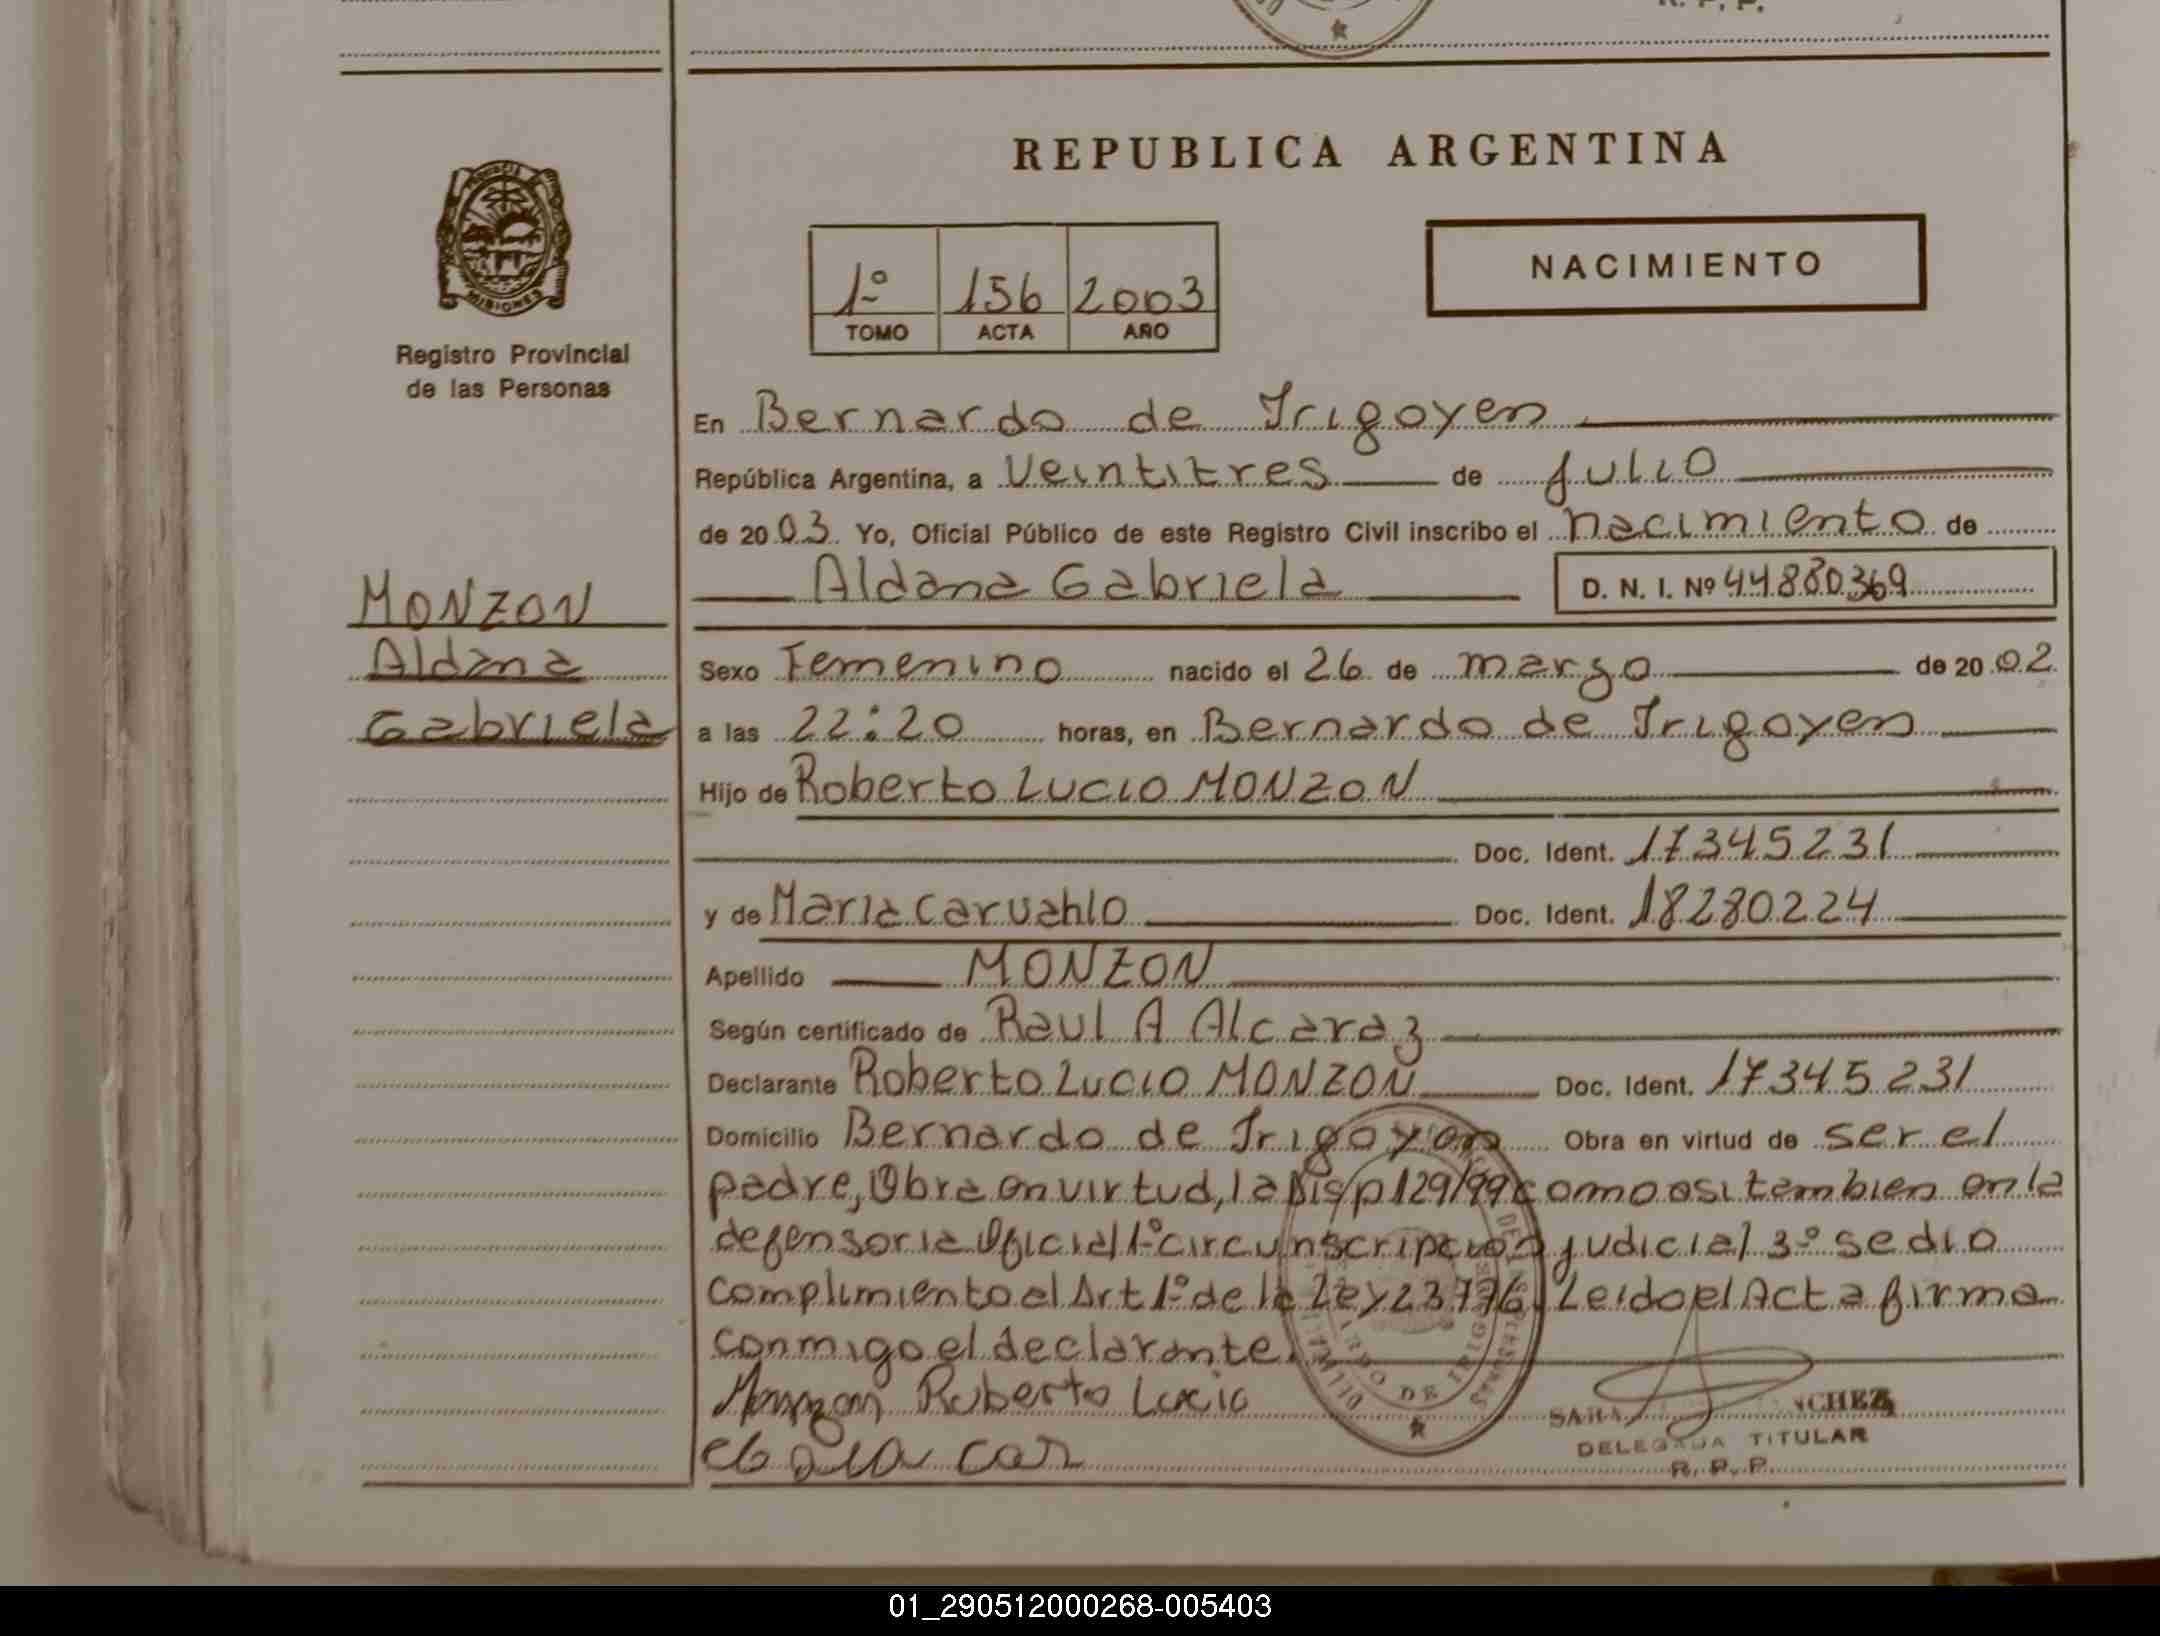 R. P. P.
REPUBLICA ARGENTINA
PROVINCIA
MISIONES
Registro Provincial
de las Personas
1º 156 2003
TOMO ACTA AÑO
NACIMIENTO
En Bernardo de Irigoyen
República Argentina, a Veintitres de julio
de 2003 Yo, Oficial Público de este Registro Civil inscribo el nacimiento de
Aldana Gabriela D. N. I. Nº 44880369
MONZON
Aldana
Gabriela
Sexo Femenino nacido el 26 de marzo de 2002
a las 22:20 horas, en Bernardo de Irigoyen
Hijo de Roberto Lucio MONZON
Doc. Ident. 17345231
y de Maria Carvahlo Doc. Ident. 18280224
Apellido MONZON
Según certificado de Raul A Alcaraz
Declarante Roberto Lucio MONZON Doc. Ident. 17345231
Domicilio Bernardo de Irigoyen Obra en virtud de ser el
padre, Obra en virtud, la Disp 129/99 como asi tambien en la
defensoria Oficial 1º circunscripcion judicial 3º se dio
complimiento al Art 1º de la Ley 23776. Leido el Acta firma
conmigo el declarante.
Monzon Roberto Lucio
DE IRIGO
SARA NCHEZ
DELEGADA TITULAR
R. P. P.
01_290512000268-005403